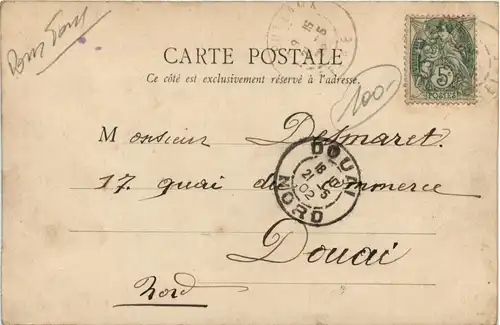 CARTE POSTALE
Ce côté est exclusivement réservé à l'adresse.
5c
POSTES
100-
Monsieur Desmaret.
17. quai du Commerce
Douai
Nord
DOUAI
21
02
NORD